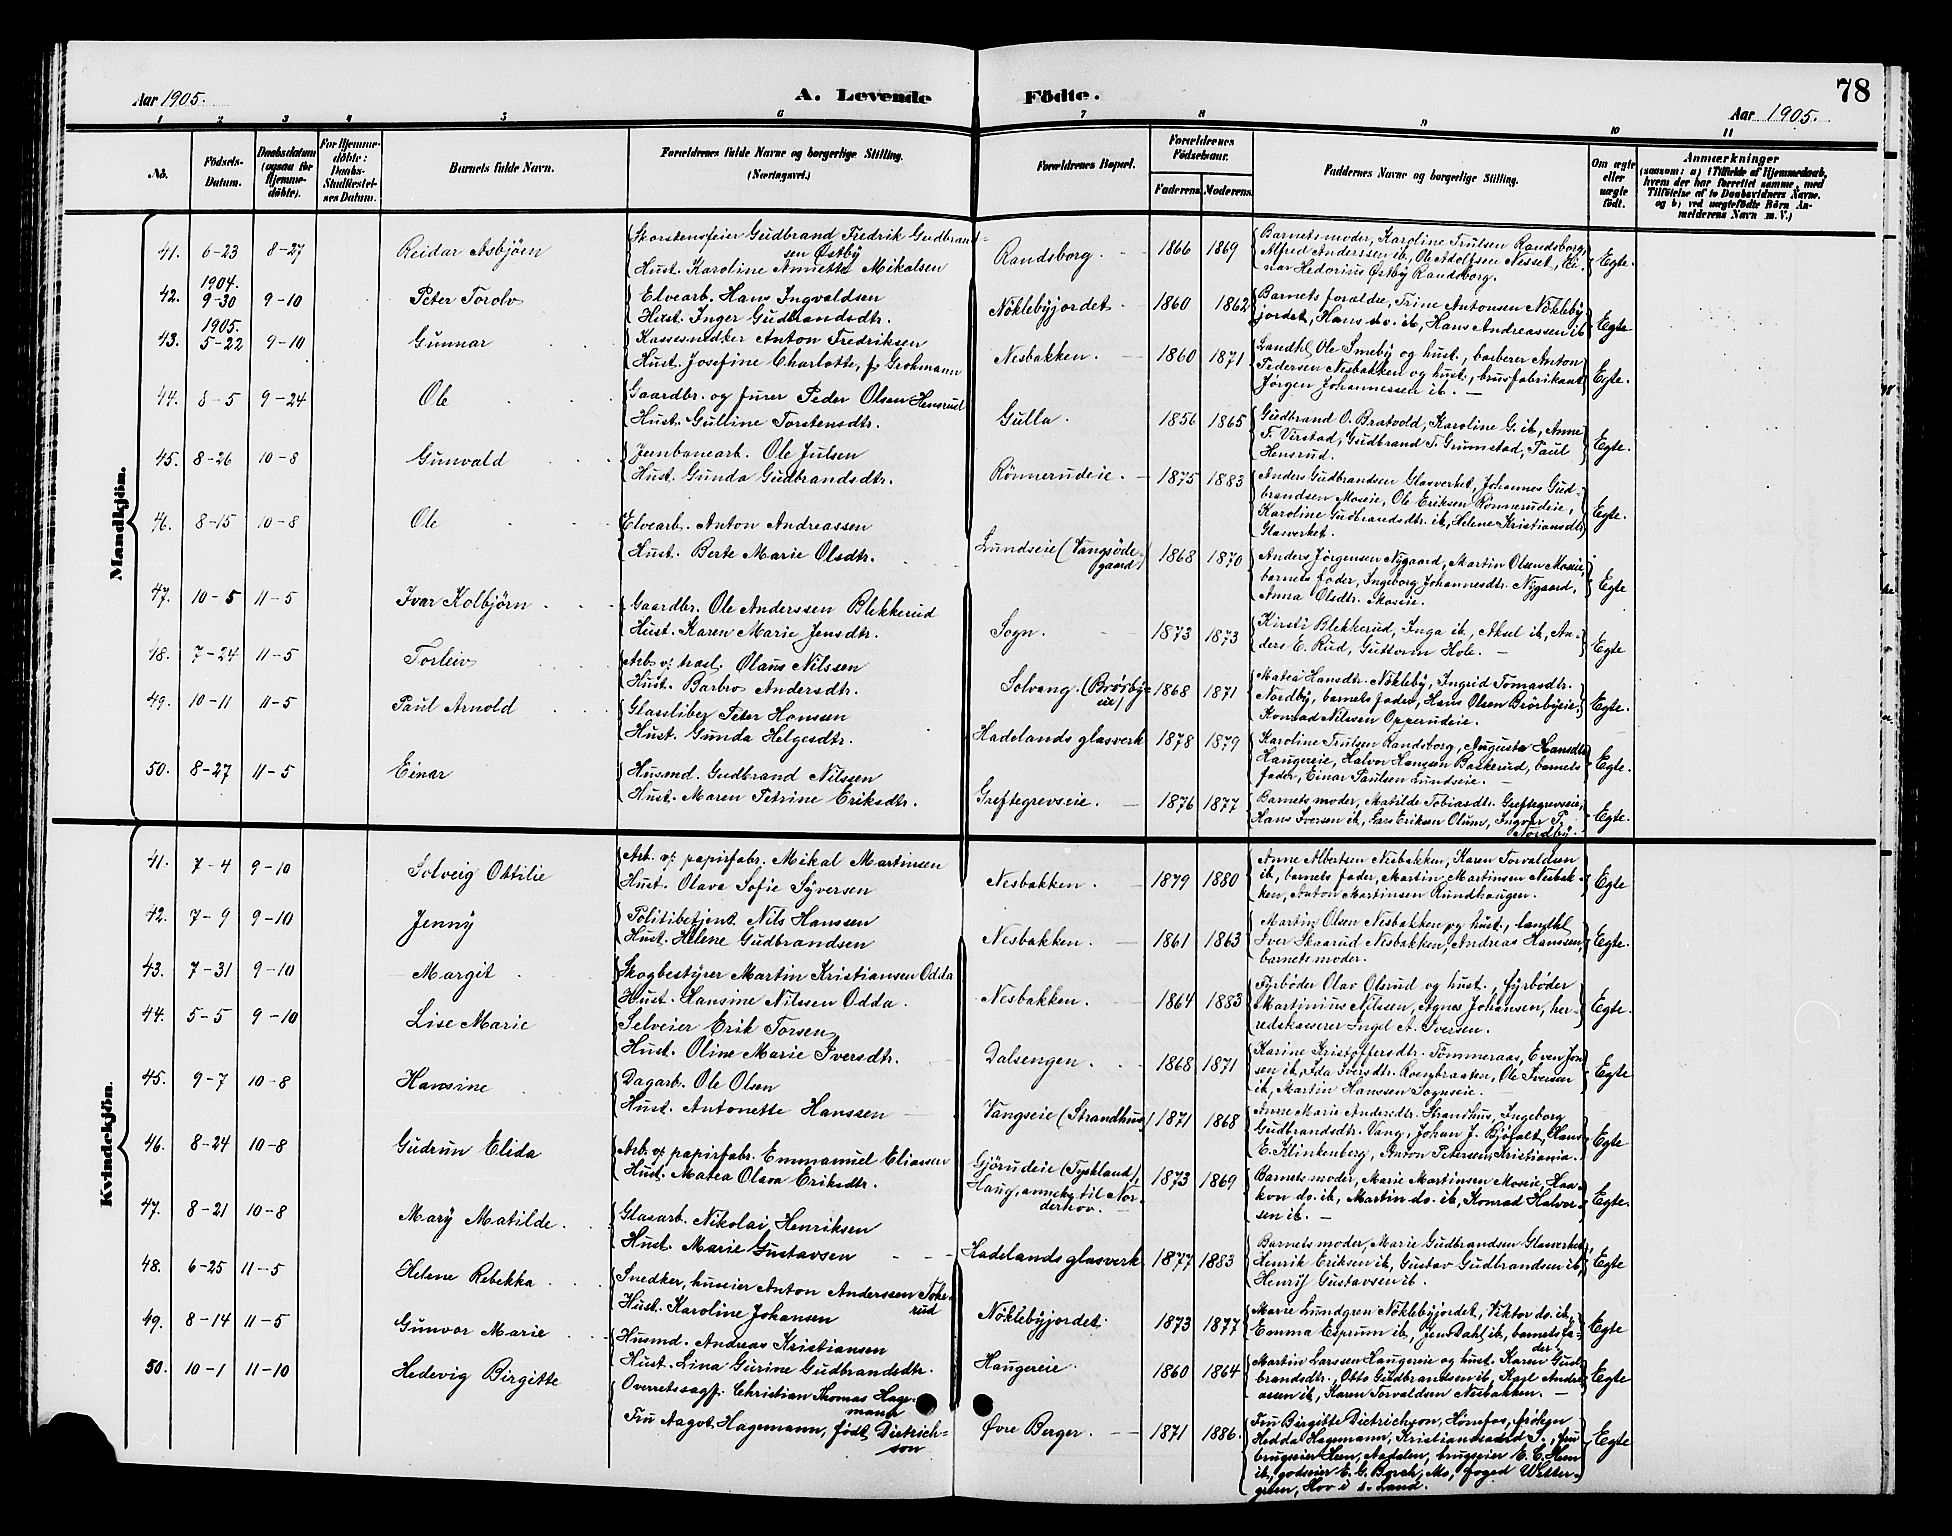 78
Aar 1905. A. Levende Födte. Aar 1905.
1 2 3 4 5 6 7 8 9 10 11
No. Födsels-Datum. Daabsdatum (ogsaa for Hjemme-döbte). For Hjemme-döbte: Daabs-Stadfæstel-ses Datum. Barnets fulde Navn. Forældrenes fulde Navne og borgerlige Stilling. (Næringsvei.) Forældrenes Bopæl. Forældrenes Födselsaar. Faderens. Moderens. Faddernes Navne og borgerlige Stilling. Om ægte eller uægte födt. Anmærkninger (saasom: a) i Tilfælde af Hjemmedaab, hvem der har forrettet samme, med Tilföielse af to Daabsvidners Navne. og b) ved uægtefödte Börn An-melderens Navn m. V.)
Mandkjön.
41. 6-23 8-27 Reidar Asbjörn Skorstensfeier Gudbrand Fredrik Gudbrand-
sen Østby
Hust. Karoline Annette Mikalsen Randsborg. 1866 1869 Barnets moder, Karoline Trulsen Randsborg,
Alfred Anderssen ib, Ole Adolfsen Nesset, Ei-
nar Hedorius Østby Randsborg. Egte.
1904.
42. 9-30 9-10 Peter Torolv Elvearb. Hans Ingvaldsen
Hust. Inger Gudbrandsdtr. Nöklebyjordet 1860 1862 Barnets foraldre, Trine Antonsen Nökleby
jordet, Hans do. ib, Hans Andreassen ib Egte.
1905.
43. 5-22 9-10 Gunnar Kassesnedker Anton Fredriksen
Hust. Josefine Charlotte, f. Grohmann Nesbakken. 1860 1871 Landhl. Ole Smeby og hust., barberer Anton
Pedersen Nesbakken og hust., brusfabrikant
Jørgen Johannessen ib. Egte.
44. 8-5 9-24 Ole Gaardbr. og furer Peder Olsen Hensrud
Hust. Gulline Torstensdtr. Gulla. 1856 1865 Gudbrand O. Bratvold, Karoline G. ib, Anne
T. Virstad, Gudbrand T. Grumstad, Paul
Hensrud. Egte.
45. 8-26 10-8 Gunvald Jernbanearb. Ole Julsen
Hust. Gunda Gudbrandsdtr. Rönnerudeie. 1875 1883 Anders Gudbrandsen Glasverket, Johannes Gud-
brandsen Moseie, Ole Eriksen Rönnerudeie,
Karoline Gudbrandsdtr. ib, Helene Kristiansdtr
Glasverket. Egte.
46. 8-15 10-8 Ole Elvearb. Anton Andreassen
Hust. Berte Marie Olsdtr. Lundseie (Vangsøde-
gaard) 1868 1870 Anders Jørgensen Nygaard, Martin Olsen Moseie,
barnets fader, Ingeborg Johannesdtr. Nygaard,
Anna Olsdtr. Moseie. Egte
47. 10-5 11-5 Ivar Kolbjörn Gaardbr. Ole Anderssen Blekkerud
Hust. Karen Marie Jensdtr. Sogn. 1873 1873 Kirsti Blekkerud, Inga ib, Aksel ib, An-
ders E. Rud, Guttorm Hole. Egte
48. 7-24 11-5 Torleiv Arb. v. træsl. Olaus Nilssen
Hust. Barbro Andersdtr. Solvang. (Brörby-
eie) 1868 1871 Matea Hansdtr. Nökleby, Ingrid Tomasdtr.
Nordby, barnets fader, Hans Olsen Brörbyeie,
Konrad Nilssen Opperudeie. Egte.
49. 10-11 11-5 Paul Arnold Glassliber Peter Hansen
Hust. Gunda Helgesdtr. Hadelands glasverk 1878 1879 Karoline Trulsen Randsborg, Augusta Hansdtr
Haugereie, Halvor Hanssen Baskerud, barnets
fader, Einar Paulsen Lundseie. Egte.
50. 8-27 11-5 Einar Husmd. Gudbrand Nilsen
Hust. Maren Petrine Eriksdtr. Greftegrevseie. 1876 1877 Barnets moder, Matilde Tobiasdtr. Greftegrevseie,
Hans Iversen ib, Lars Eriksen Olum, Ingvar P.
Nordby. Egte.
Kvindekjön.
41. 7-4 9-10 Solveig Ottilie Arb. v. papirfabr. Mikal Martinsen
Hust. Olava Sofie Syversen Nesbakken. 1879 1880 Anne Albertsen Nesbakken, Karen Torvaldsen
ib, barnets fader, Martin Martinsen Nesbak-
ken, Anton Martinsen Rundhaugen. Egte
42. 7-9 9-10 Jenny Politibetjent Nils Hanssen
Hust. Helene Gudbrandsen Nesbakken. 1861 1863 Martin Olsen Nesbakken og hust., landhl.
Iver Skaarud Nesbakken, Andreas Hanssen,
barnets moder. Egte.
43. 7-31 9-10 Margit Skogbestyrer Martin Kristiansen Odda
Hust. Hansine Nilssen Odda. Nesbakken. 1864 1883 Fyrbøder Olav Olsrud og hust., fyrbøder
Martinius Nilsen, Agnes Johansen, her-
redskasserer Ingel A. Iversen. Egte.
44. 5-5 9-10 Lise Marie Selveier Erik Torsen
Hust. Oline Marie Iversdtr. Dalsengen. 1868 1871 Karine Kristoffersdtr. Tømmeraas, Even Jon-
sen ib, Ida Iversdtr. Roenbraaten, Ole Iversen
ib, Martin Hanssen Sognseie. Egte
45. 9-7 10-8 Hansine Dagarb. Ole Olsen
Hust. Antonette Hanssen Vangseie (Strandhus) 1871 1868 Anne Marie Andersdtr. Strandhus, Ingeborg
Gudbrandsdtr. Vang, Johan J. Björalt, Hans
E. Klinkenberg, Anton Petersen, Kristiania. Egte
46. 8-24 10-8 Gudrun Elida Arb. v. papirfabr. Emmanuel Eliassen
Hust. Matea Olava Eriksdtr. Gjörudeie (Tyskland),
Haug, anneks til Nor-
derhov. 1873 1869 Barnets moder, Marie Martinsen Moseie, Haa-
kon do. ib, Martin do. ib, Konrad Halvor-
sen ib. Egte.
47. 8-21 10-8 Mary Matilde Glasarb. Nikolai Henriksen
Hust. Marie Gustavsen Hadelands glasverk 1877 1883 Barnets moder, Marie Gudbrandsen Glasverket,
Henrik Eriksen ib, Gustav Gudbrandsen ib,
Henrij Gustavsen ib. Egte
48. 6-25 11-5 Helene Rebekka Snedker, huseier Anton Anderssen Toke-
rud
Hust. Karoline Johansen Nöklebyjordet. 1873 1877 Marie Lundgren Nöklebyjordet, Viktor do. ib,
Emma Esprum ib, Jens Dahl ib, barnets fa-
der. Egte
49. 8-14 11-5 Gunvor Marie Husmd. Andreas Kristiansen
Hust. Lina Gurine Gudbrandsdtr. Haugereie. 1860 1864 Martin Larssen Haugereie og hust. Karen Gud-
brandsdtr., Otto Gudbrandsen ib, Karl Andre-
assen ib, Karen Torvaldsen Nesbakken. Egte
50. 10-1 11-10 Hedevig Birgitte Overretssagf. Christian Thomas Hage-
mann
Fru Aagot Hagemann, født Dietrich-
son Øvre Berger. 1871 1886. Fru Birgitte Dietrichson, Hönefos, frøken
Hedda Hagemann, Kristianssand S., fru
brugseier Hen, Aadalen, brugseier E. C. Hen
ib, godseier E. G. Borch, Mo, foged Wetter-
green, Hov i s. Land. Egte